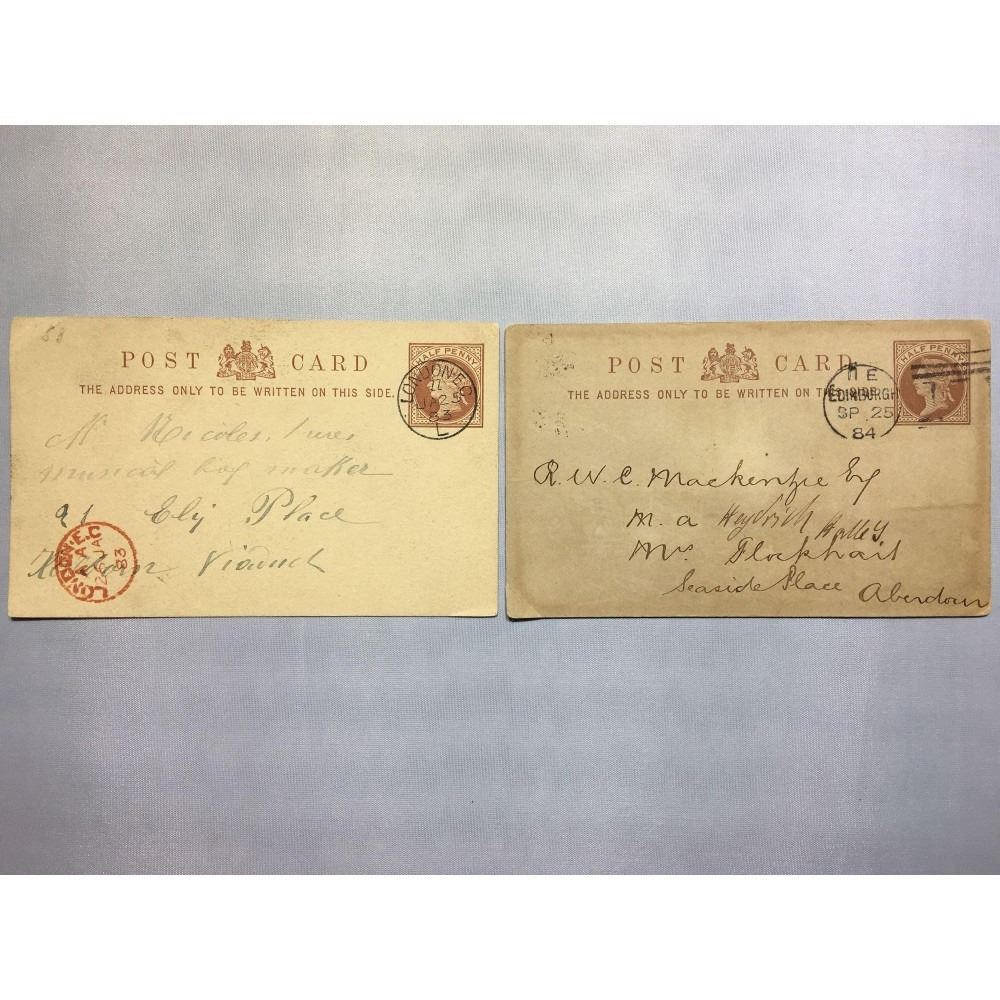 58
POST CARD
THE ADDRESS ONLY TO BE WRITTEN ON THIS SIDE.
HALF PENNY
LONDON·E.C
JA 25
83
L
Mr Nicole
musical box maker
21 Ely Place
Holborn Viaduct
LONDON·E.C
A A
26 JA
83
POST CARD
THE ADDRESS ONLY TO BE WRITTEN ON THIS SIDE.
HALF PENNY
EDINBURGH
SP 25
84
R. W. C. Mackenzie Esq
Mrs Flockhart
Seaside Place Aberdour